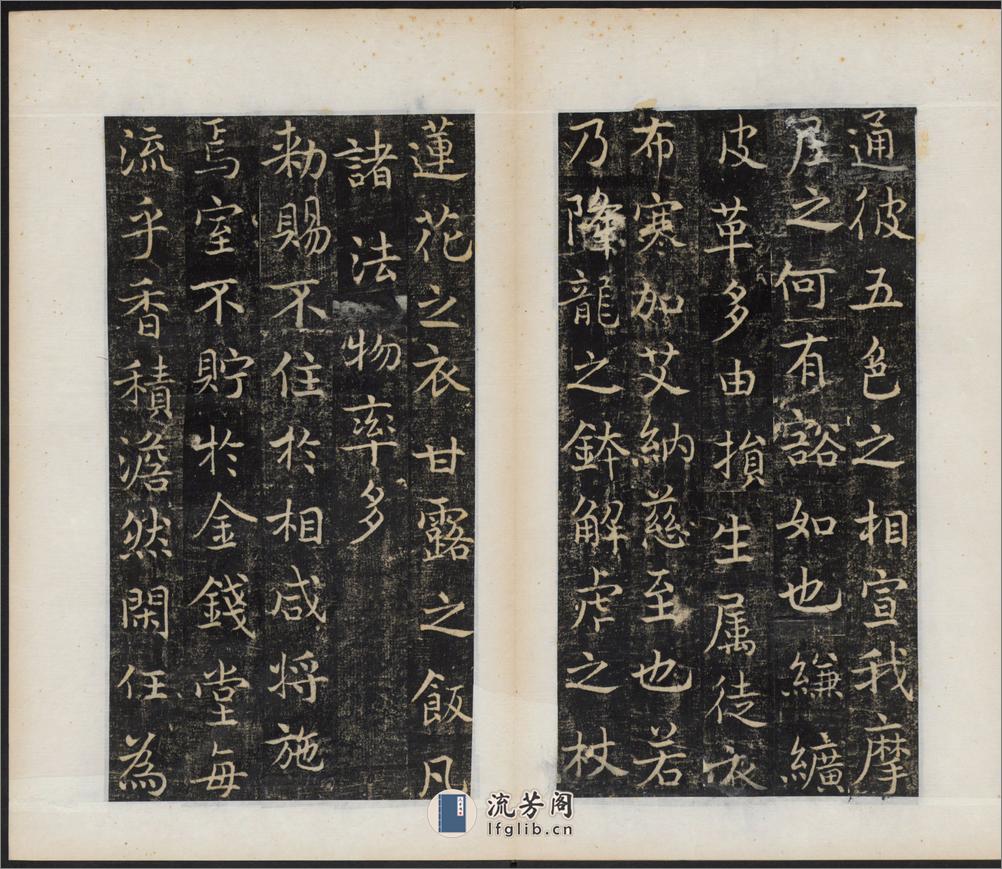 通彼五色之相宣我摩
居之何有豁如也縑纊
皮革多由損生属徒衣
布寒加艾納慈至也若
乃降龍之鉢解虎之杖
蓮花之衣甘露之飯凡
諸法物率多
勅賜不住於相咸将施
焉室不貯於金錢堂每
流乎香積澹然閑任為
流芳阁
lfglib.cn